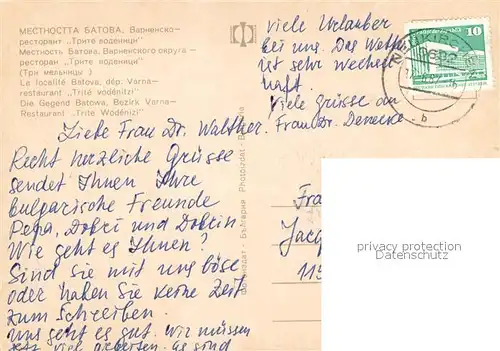 МЕСТНОСТТА БАТОВА, Варненско—
ресторант „Трите воденици"
Местность Батова, Варненского округа —
ресторан „Трите воденици"
(Три мельницы)
La localité Batova, dép. Varna—
restaurant „Trité vodénizi"
Die Gegend Batowa, Bezirk Varna—
Restaurant „Trite Wodenizi"
viele Urlauber
bei uns. Das Wetter
ist sehr wechel
haft.
Viele Grüsse an
Frau Dr. Denecke
Liebe Frau Dr. Walther.
Recht herzliche Grüsse
sendet Ihnen Ihre
bulgarische Freunde
Pepa, Dobri und Dobrin.
Wie geht es Ihnen?
Sind sie mit uns böse
oder haben Sie keine Zeit
zum Schreiben.
Uns geht es gut. Wir müssen
viel arbeiten. Es sind
Фотоиздат - България Photoizdat - 
10
b
Fra
Jacq
115
privacy protection
Datenschutz